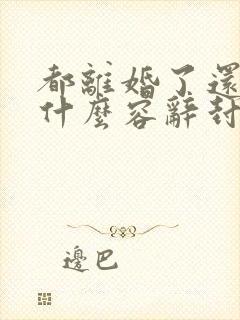 都離婚了還
什麼容辭封
邊巴